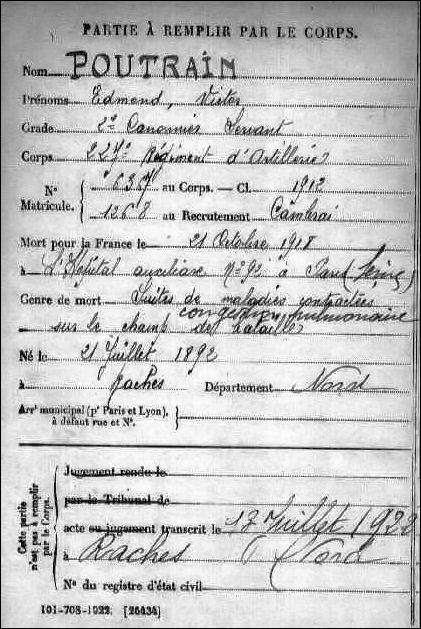 PARTIE À REMPLIR PAR LE CORPS.
Nom POUTRAIN
Prénoms Edmond, Victor
Grade 2e Canonnier Servant
Corps 227e Régiment d'Artillerie
N° Matricule. au Corps. — Cl. 1912
1268 au Recrutement Cambrai
Mort pour la France le 21 Octobre 1918
à l'Hôpital auxiliaire N° 92 à Paris (Seine)
Genre de mort Suites de maladies contractées
congestion pulmonaire
sur le champ de bataille
Né le 21 Juillet 1892
à Raches Département Nord
Arrt municipal (pr Paris et Lyon),
à défaut rue et N°.
Cette partie n'est pas à remplir par le Corps.
Jugement rendu le
par le Tribunal de
acte ou jugement transcrit le 13 Juillet 1922
à Raches (Nord
N° du registre d'état civil
101-708-1922. [26434]